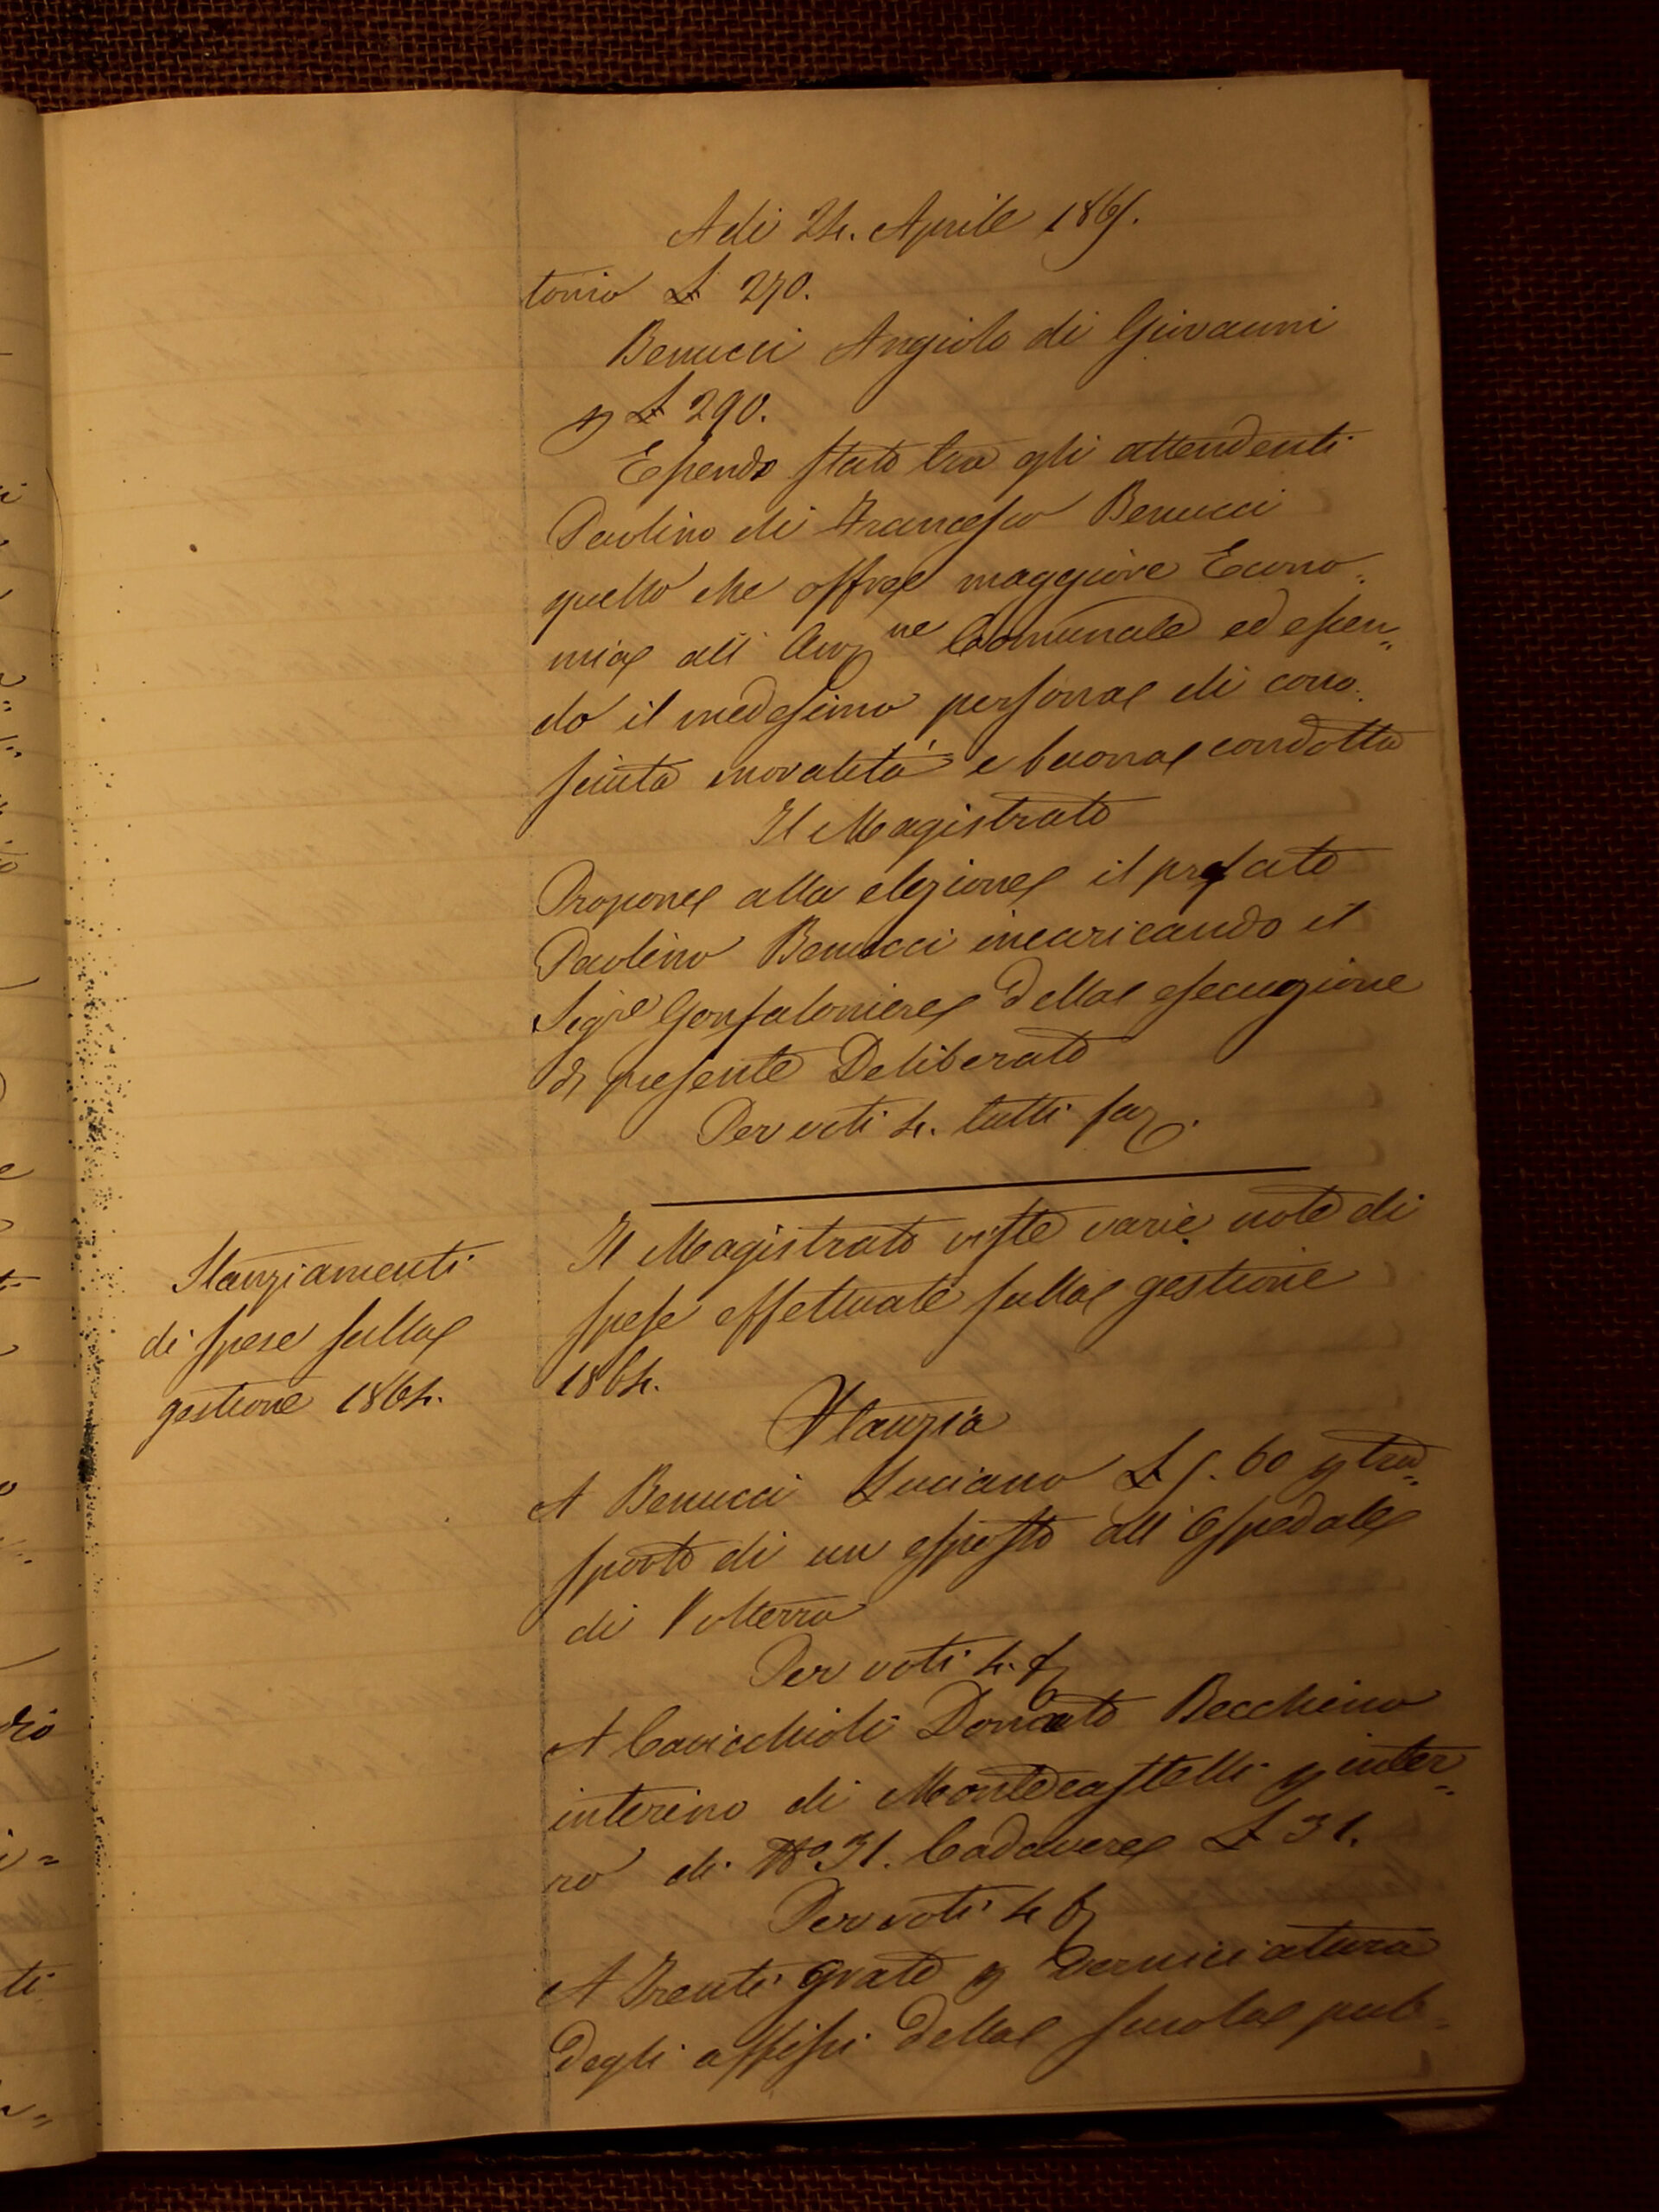 Adi 24. Aprile 1865.
tonio £ 270.
Benucci Angiolo di Giovanni
p £ 290.
Essendo stato tra gli attendenti
Paolino di Francesco Benucci
quello che offre maggiore Econo=
mia all' Amne Comunale ed essen=
do il medesimo persona di cono=
sciuta moralità e buona condotta
Il Magistrato
Propone alla elezione il prefato
Paolino Benucci incaricando il
Sigre Gonfaloniere della esecuzione
d presente Deliberato
Per voti 4. tutti fa
Stanziamenti
di spese sulla
gestione 1864.
Il Magistrato viste varie note di
spese effettuate sulla gestione
1864.
Stanzia
A Benucci Luciano £ 5. 60 p tra=
sporto di un esposto all' Ospedale
di Volterra
Per voti 4. f
A Cavicchioli Donato Becchino
interino di Montecastelli p inter=
ro di No 31. Cadavere £ 31.
Per voti 4 f
A Trenti Grato p Verniciatura
degli affissi della scuola pub=